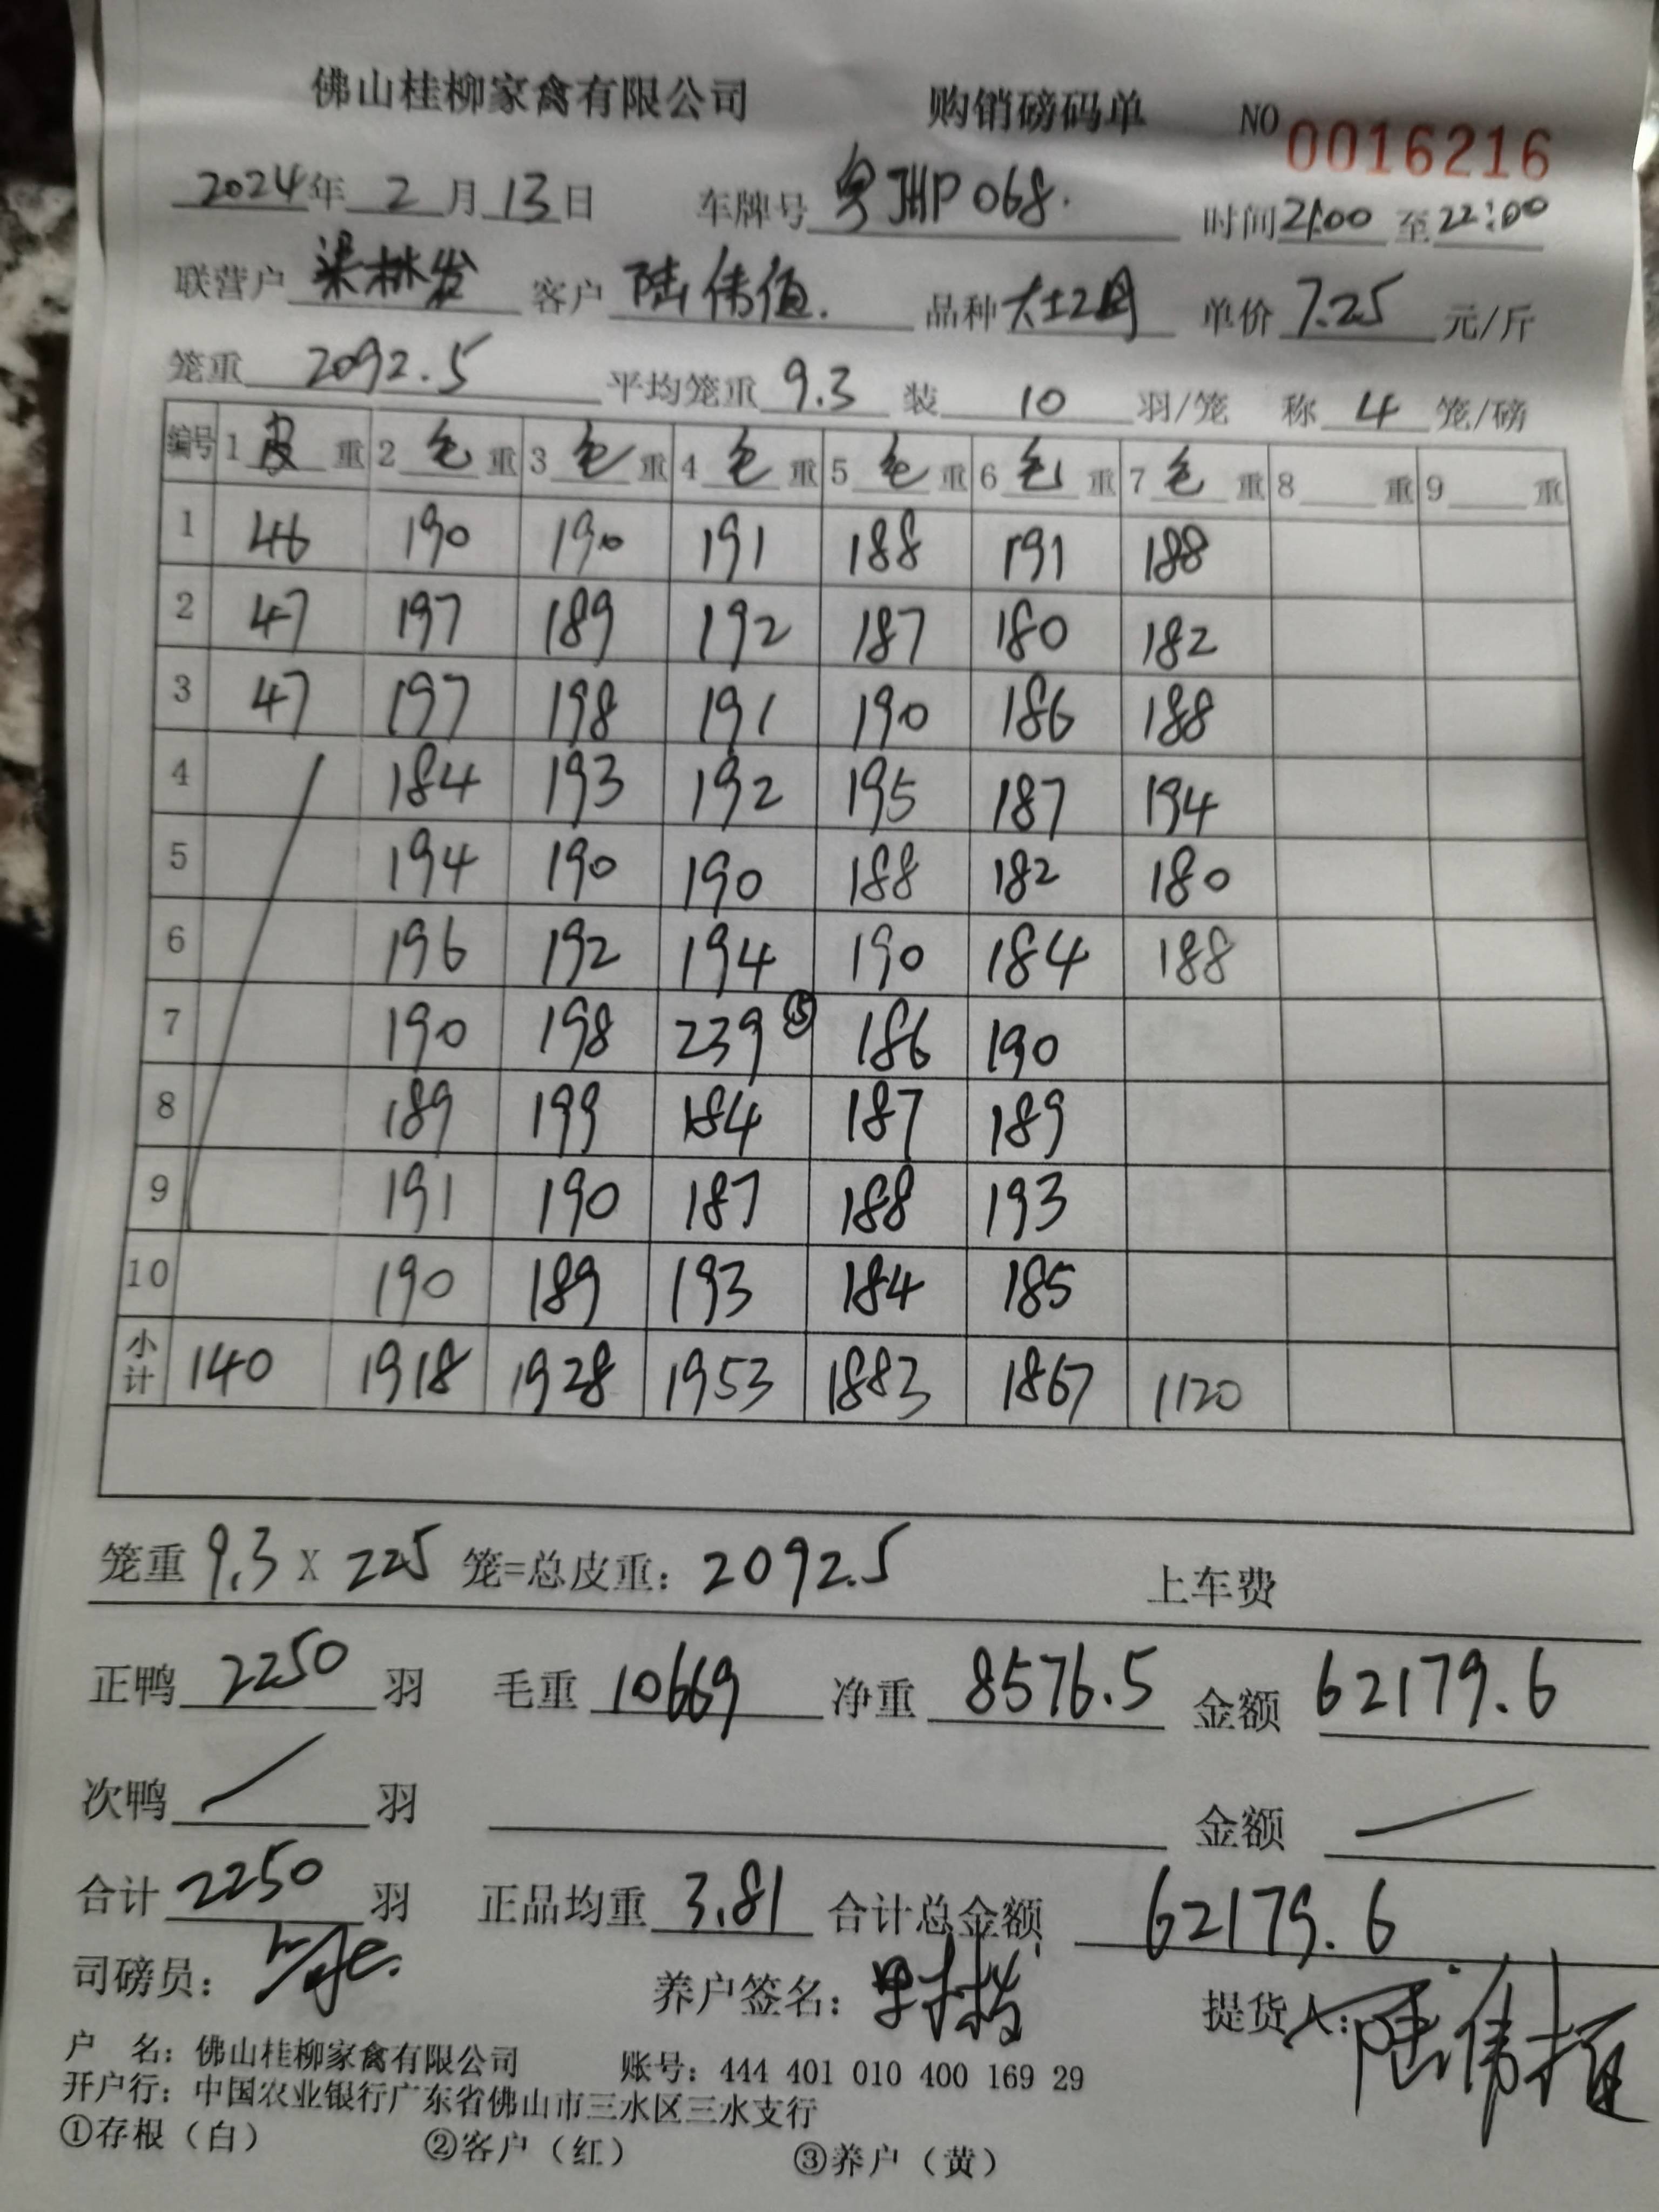 佛山桂柳家禽有限公司 购销磅码单 NO 0016216
2024年 2月 13日 车牌号 粤JHP068. 时间 21:00 至 22:00
联营户 梁林发 客户 陆伟值. 品种 单价 7.25 元/斤
笼重 2092.5 平均笼重 9.3 装 10 羽/笼 称 4 笼/磅
编号 1 皮 重 2 毛 重 3 毛 重 4 毛 重 5 毛 重 6 毛 重 7 毛 重 8 重 9 重
1 46 190 190 191 188 191 188
2 47 197 189 192 187 180 182
3 47 197 198 191 190 186 188
4 184 193 192 195 187 194
5 194 190 190 188 182 180
6 196 192 194 190 184 188
7 190 198 239 ⑤ 186 190
8 189 199 184 187 189
9 191 190 187 188 193
10 190 189 193 184 185
小计 140 1918 1928 1953 1883 1867 1120
笼重 9.3 X 225 笼=总皮重: 2092.5 上车费
正鸭 2250 羽 毛重 10669 净重 8576.5 金额 62179.6
次鸭 / 羽 金额 /
合计 2250 羽 正品均重 3.81 合计总金额 62179.6
司磅员: 养户签名: 提货人: 陆伟值
户 名: 佛山桂柳家禽有限公司 账号: 444 401 010 400 169 29
开户行: 中国农业银行广东省佛山市三水区三水支行
①存根（白） ②客户（红） ③养户（黄）